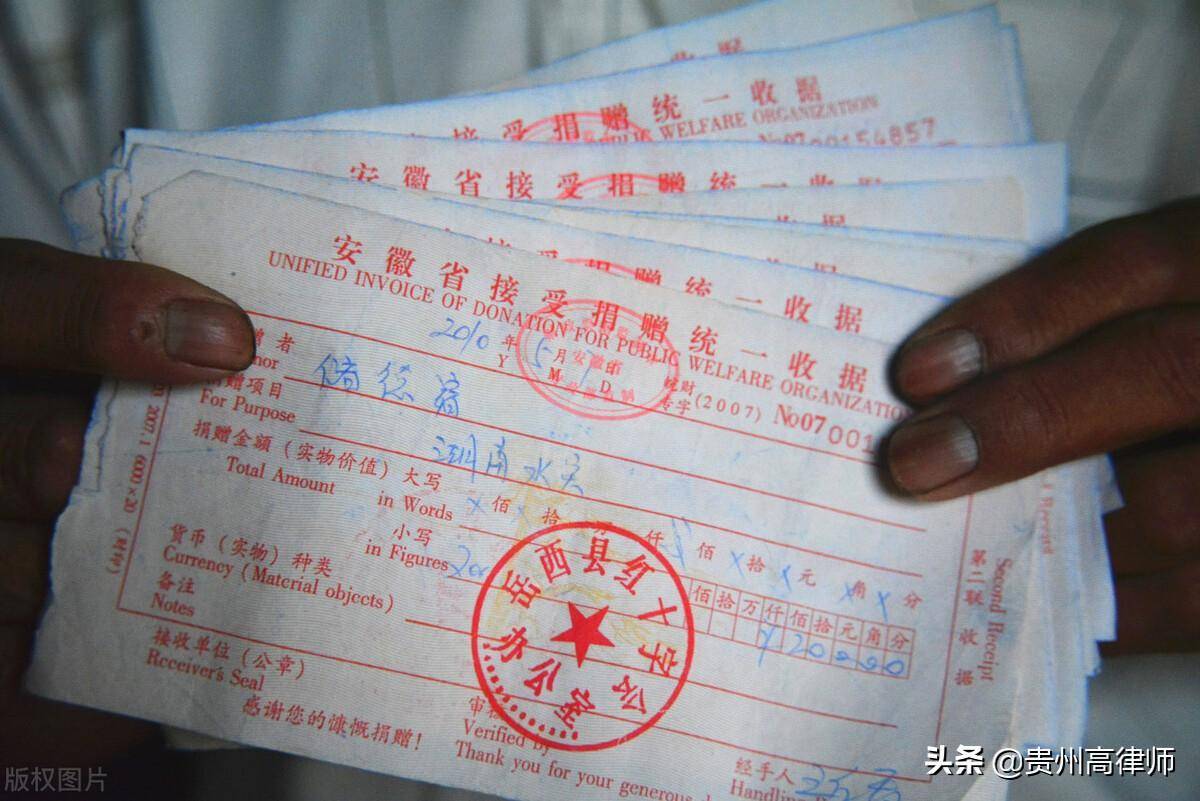 接受捐赠统一收据
PUBLIC WELFARE ORGANIZATION
No0700154857
安徽省接受捐赠统一收据
安徽省接受捐赠统一收据
UNIFIED INVOICE OF DONATION FOR PUBLIC WELFARE ORGANIZATION
2010年5月 D
Y M D
皖财
专字(2007) No07001
赠者
储德
捐赠项目
For Purpose
湖南水灾
捐赠金额(实物价值)大写
Total Amount in Words
X佰X拾 万 仟 佰X拾X元X角X分
小写
in Figures
佰拾万仟佰拾元角分
¥20000
货币(实物)种类
Currency (Material objects)
备注
Notes
接收单位(公章)
Receiver's Seal
岳西县红十字会
办公室
Verified by
感谢您的慷慨捐赠!
Thank you for your generous
经手人
Handling
第二联 收据
Second Receipt
2007.1 6000×20
版权图片
头条 @贵州高律师